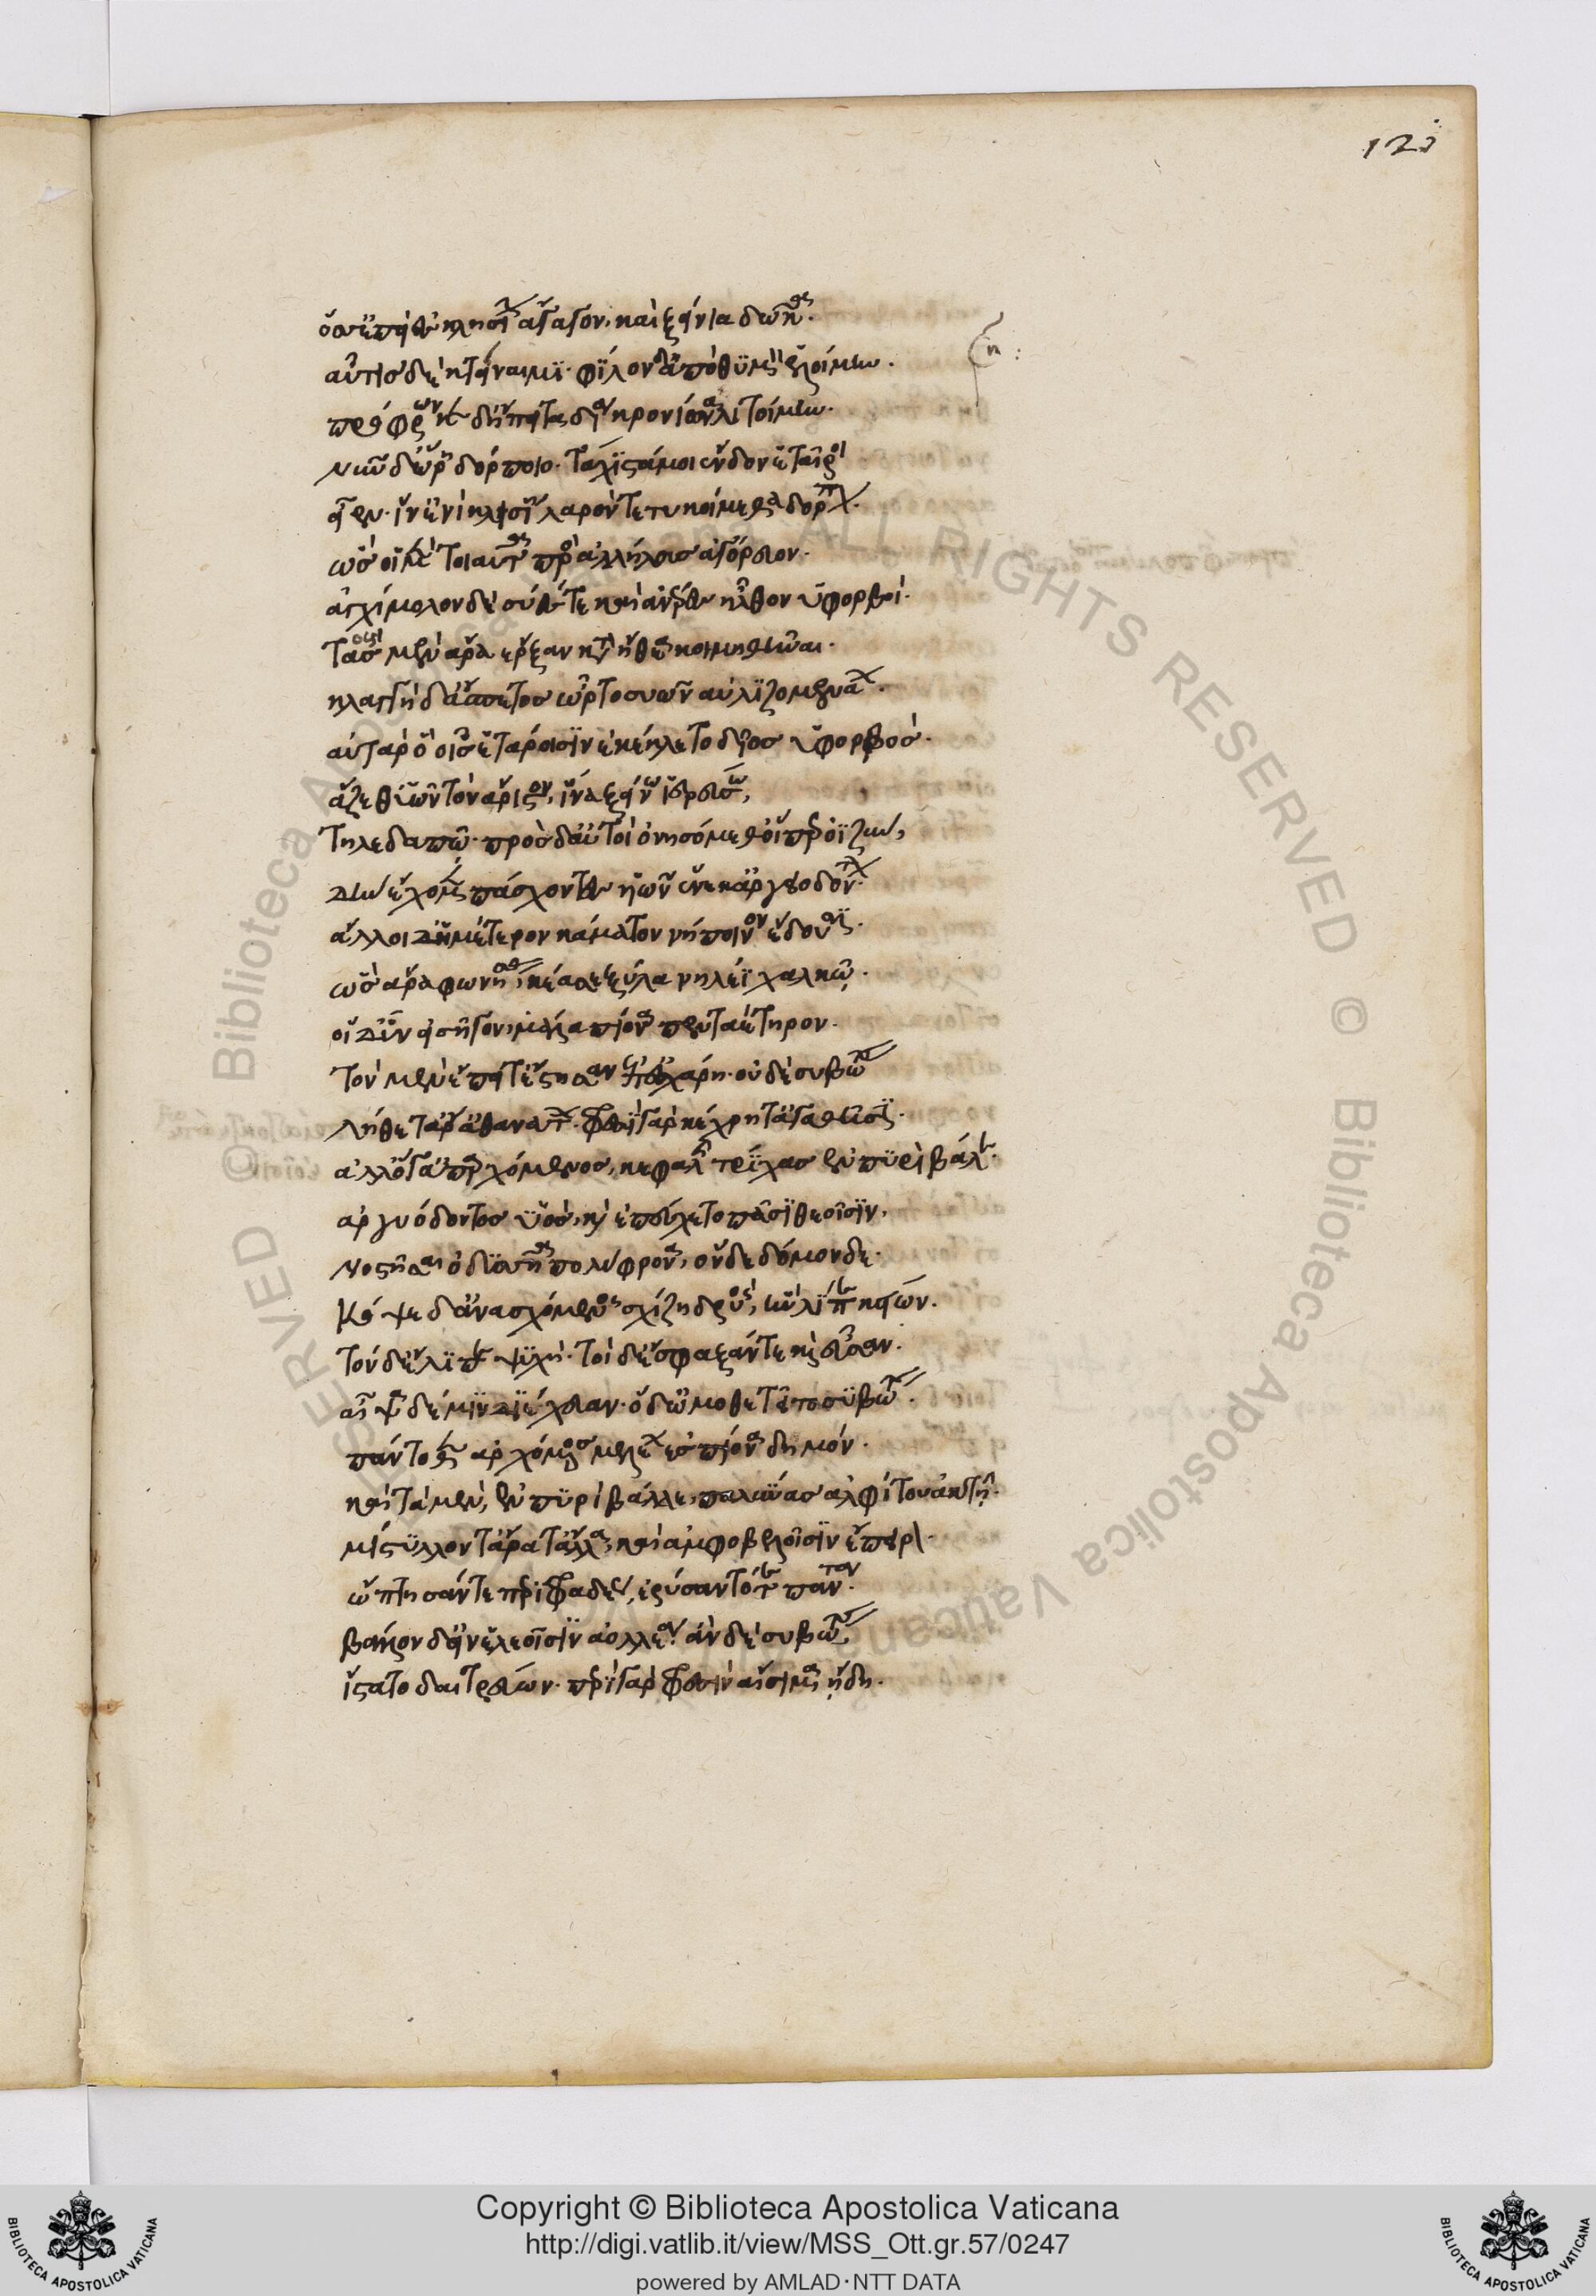 ὅς σ' ἐπεὶ ἐς κλισίην ἄγαγον, καὶ ξείνια δῶκα.
αὖτις δὲ κτείναιμι. φίλον δ' ἀπὸ θυμὸν ἑλοίμην.
πρόφρων κεν δὴ ἔπειτα δία κρονίωνα λιτοίμην.
νῦν δ' ὥρη δόρποιο. τάχιστά μοι ἔνδον ἑταῖροι
εἶεν. ἵν' ἐνὶ κλισίῃ λαρὸν τετυκοίμεθα δόρπον.
ὣς οἱ μὲν τοιαῦτα πρὸς ἀλλήλους ἀγόρευον.
ἀγχίμολον δὲ σύες τε καὶ ἀνέρες ἦλθον ὑφορβοί.
τὰς μὲν ἄρα ἔρξαν κατὰ ἤθεα κοιμηθῆναι.
κλαγγὴ δ' ἄσπετος ὦρτο συῶν αὐλιζομενάων.
αὐτὰρ ὃ οἷς ἑτάροισιν ἐκέκλετο δῖος ὑφορβός.
ἄξεθ' ὑῶν τὸν ἄριστον, ἵνα ξείνῳ ἱερεύσω,
τηλεδαπῷ. πρὸς δ' αὐτοὶ ὀνησόμεθ' οἵ περ ὀϊζὺν,
δὴν ἔχομεν πάσχοντες ὑῶν ἕνεκ' ἀργιοδόντων.
ἄλλοι δ' ἡμέτερον κάματον νήποινον ἔδουσιν.
ὣς ἄρα φωνήσας, κέασε ξύλα νηλέϊ χαλκῷ.
οἱ δ' ὗν εἰσῆγον, μάλα πίονα πενταέτηρον.
τὸν μὲν ἔπειτ' ἔστησαν ἐπ' ἐσχάρῃ. οὐδὲ συβώτης
λήθετ' ἄρ' ἀθανάτων. φρεσὶ γὰρ κέχρητ' ἀγαθῇσιν.
ἀλλ' ὅ γ' ἀπαρχόμενος, κεφαλῆς τρίχας ἐν πυρὶ βάλλεν.
ἀργιόδοντος ὑός, καὶ ἐπεύχετο πᾶσι θεοῖσιν,
νοστῆσαι ὀδυσῆα πολύφρονα, ὅνδε δόμονδε.
κόψε δ' ἀνασχόμενος σχίζῃ δρυὸς, ἣν λίπε κείων.
τὸν δ' ἔλιπε ψυχή. τοὶ δ' ἔσφαξάν τε καὶ εὗσαν.
αἶψα δέ μιν διέχευαν. ὁ δ' ὠμοθετεῖτο συβώτης.
πάντοθεν ἀρχόμενος μελέων ἐς πίονα δημόν.
καὶ τὰ μὲν, ἐν πυρὶ βάλλε, παλύνας ἀλφίτου ἀκτῇ.
μίστυλλόν τ' ἄρα τἆλλα, καὶ ἀμφ' ὀβελοῖσιν ἔπειραν.
ὤπτησάν τε περιφραδέως, ἐρύσαντό τε πάντα.
βάλλον δ' εἰν ἐλεοῖσιν ἀολλέα. ἂν δὲ συβώτης,
ἵστατο δαιτρεύσων. περὶ γὰρ φρεσὶν αἴσιμα ᾔδη.
Copyright © Biblioteca Apostolica Vaticana
http://digi.vatlib.it/view/MSS_Ott.gr.57/0247
powered by AMLAD·NTT DATA